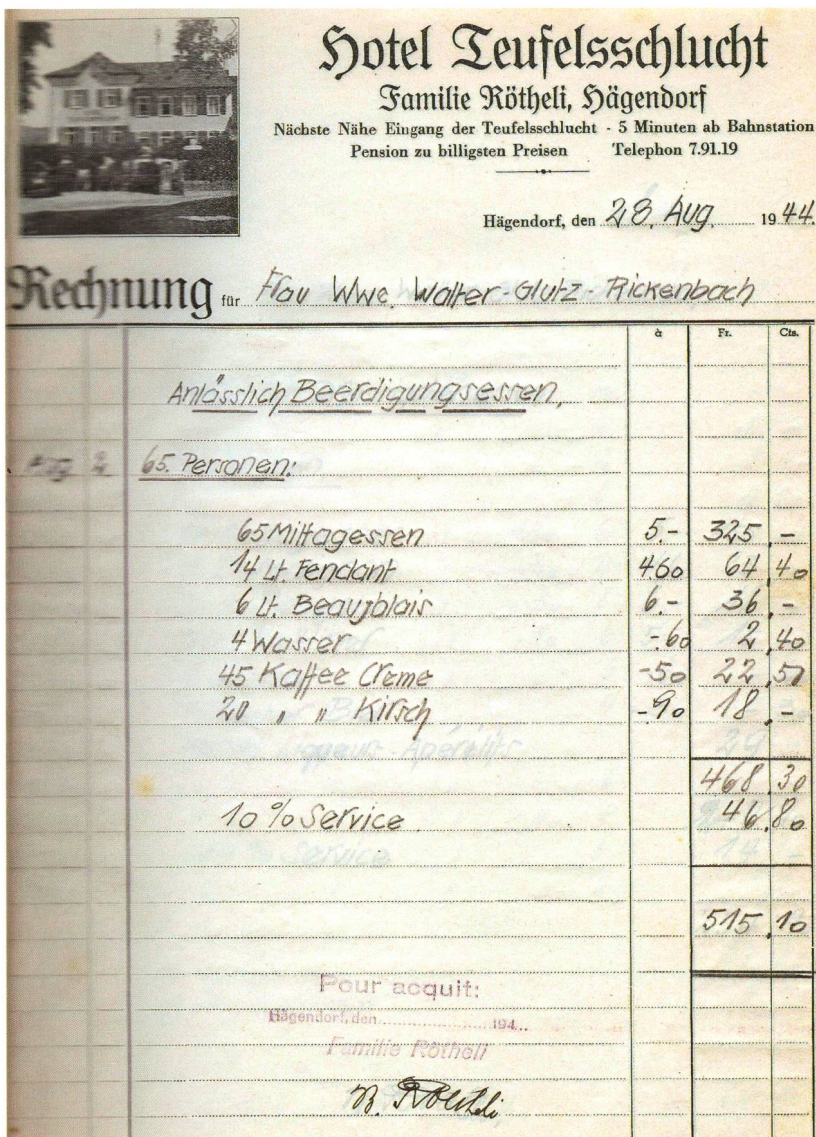 Hotel Teufelsschlucht
Familie Rötheli, Hägendorf
Nächste Nähe Eingang der Teufelsschlucht - 5 Minuten ab Bahnstation
Pension zu billigsten Preisen Telephon 7.91.19
Hägendorf, den 28. Aug. 1944.
Rechnung für Frau Wwe. Walter-Glutz-Rickenbach
à Fr. Cts.
Anlässlich Beerdigungsessen,
65. Personen:
65 Mittagessen 5.- 325.-
14 Lt. Fendant 460 64.40
6 Lt. Beaujolais 6.- 36.-
4 Wasser -60 2.40
45 Kaffee Creme -50 22.50
20 " " Kirsch -90 18.-
468.30
10 % Service 46.80
515.10
Pour acquit:
Hägendorf, den 194
Familie Rötheli
B. Rötheli